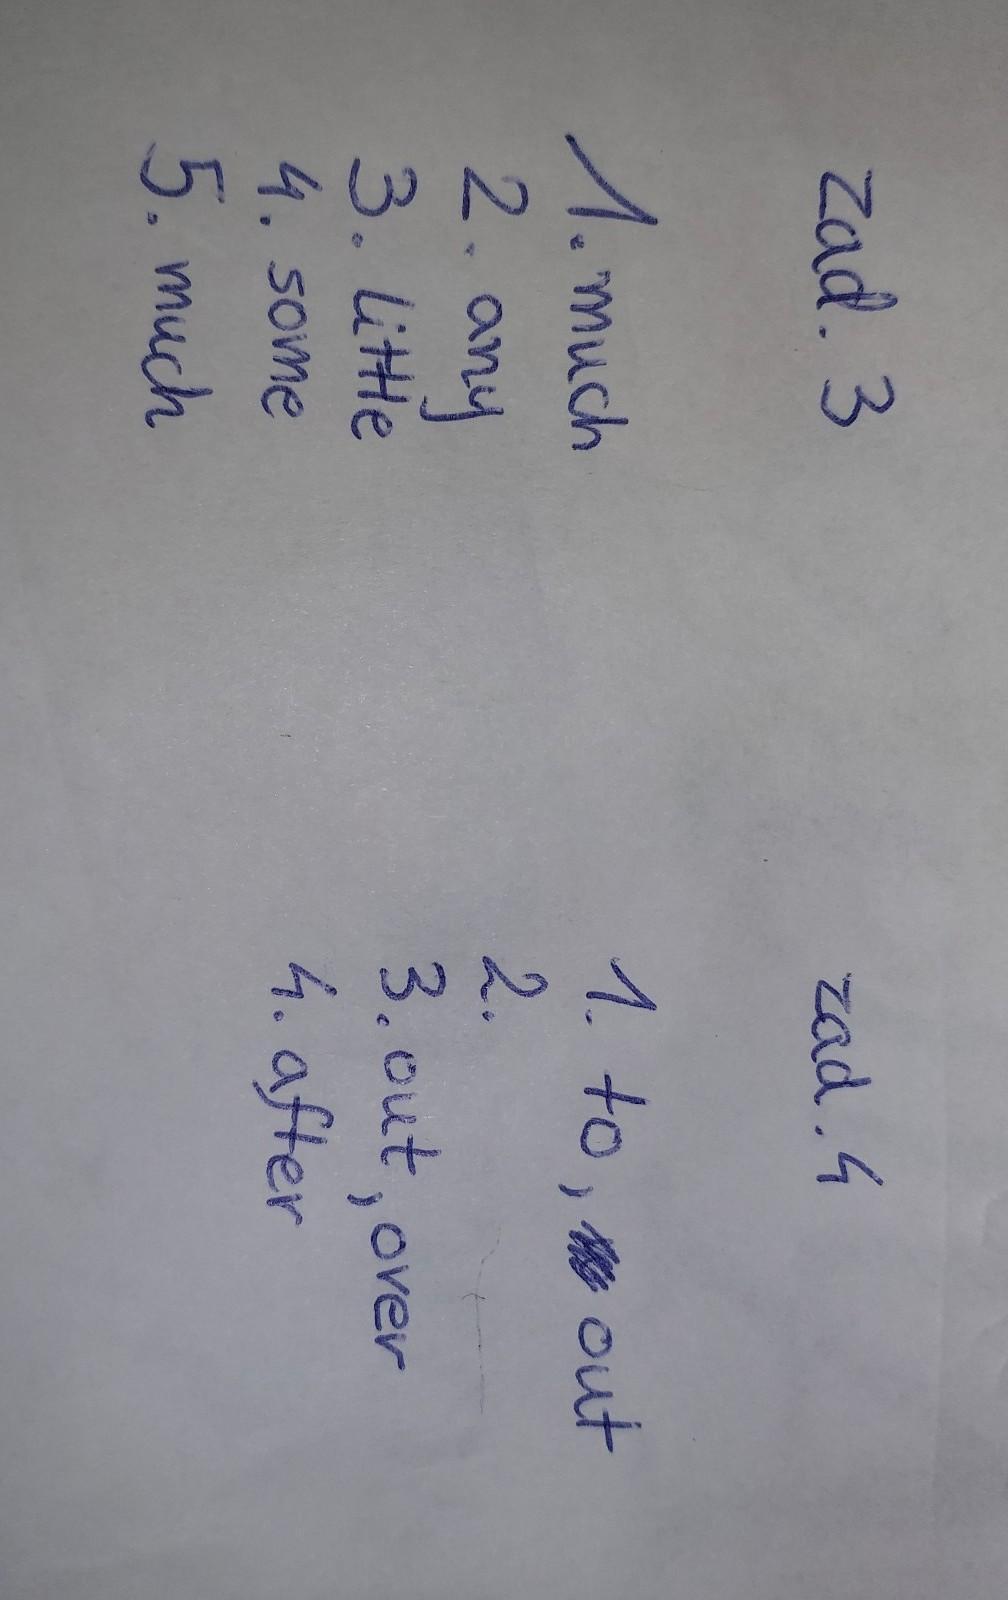 zad. 3
1. much
2. any
3. little
4. some
5. much
zad. 4
1. to, out
2.
3. out, over
4. after